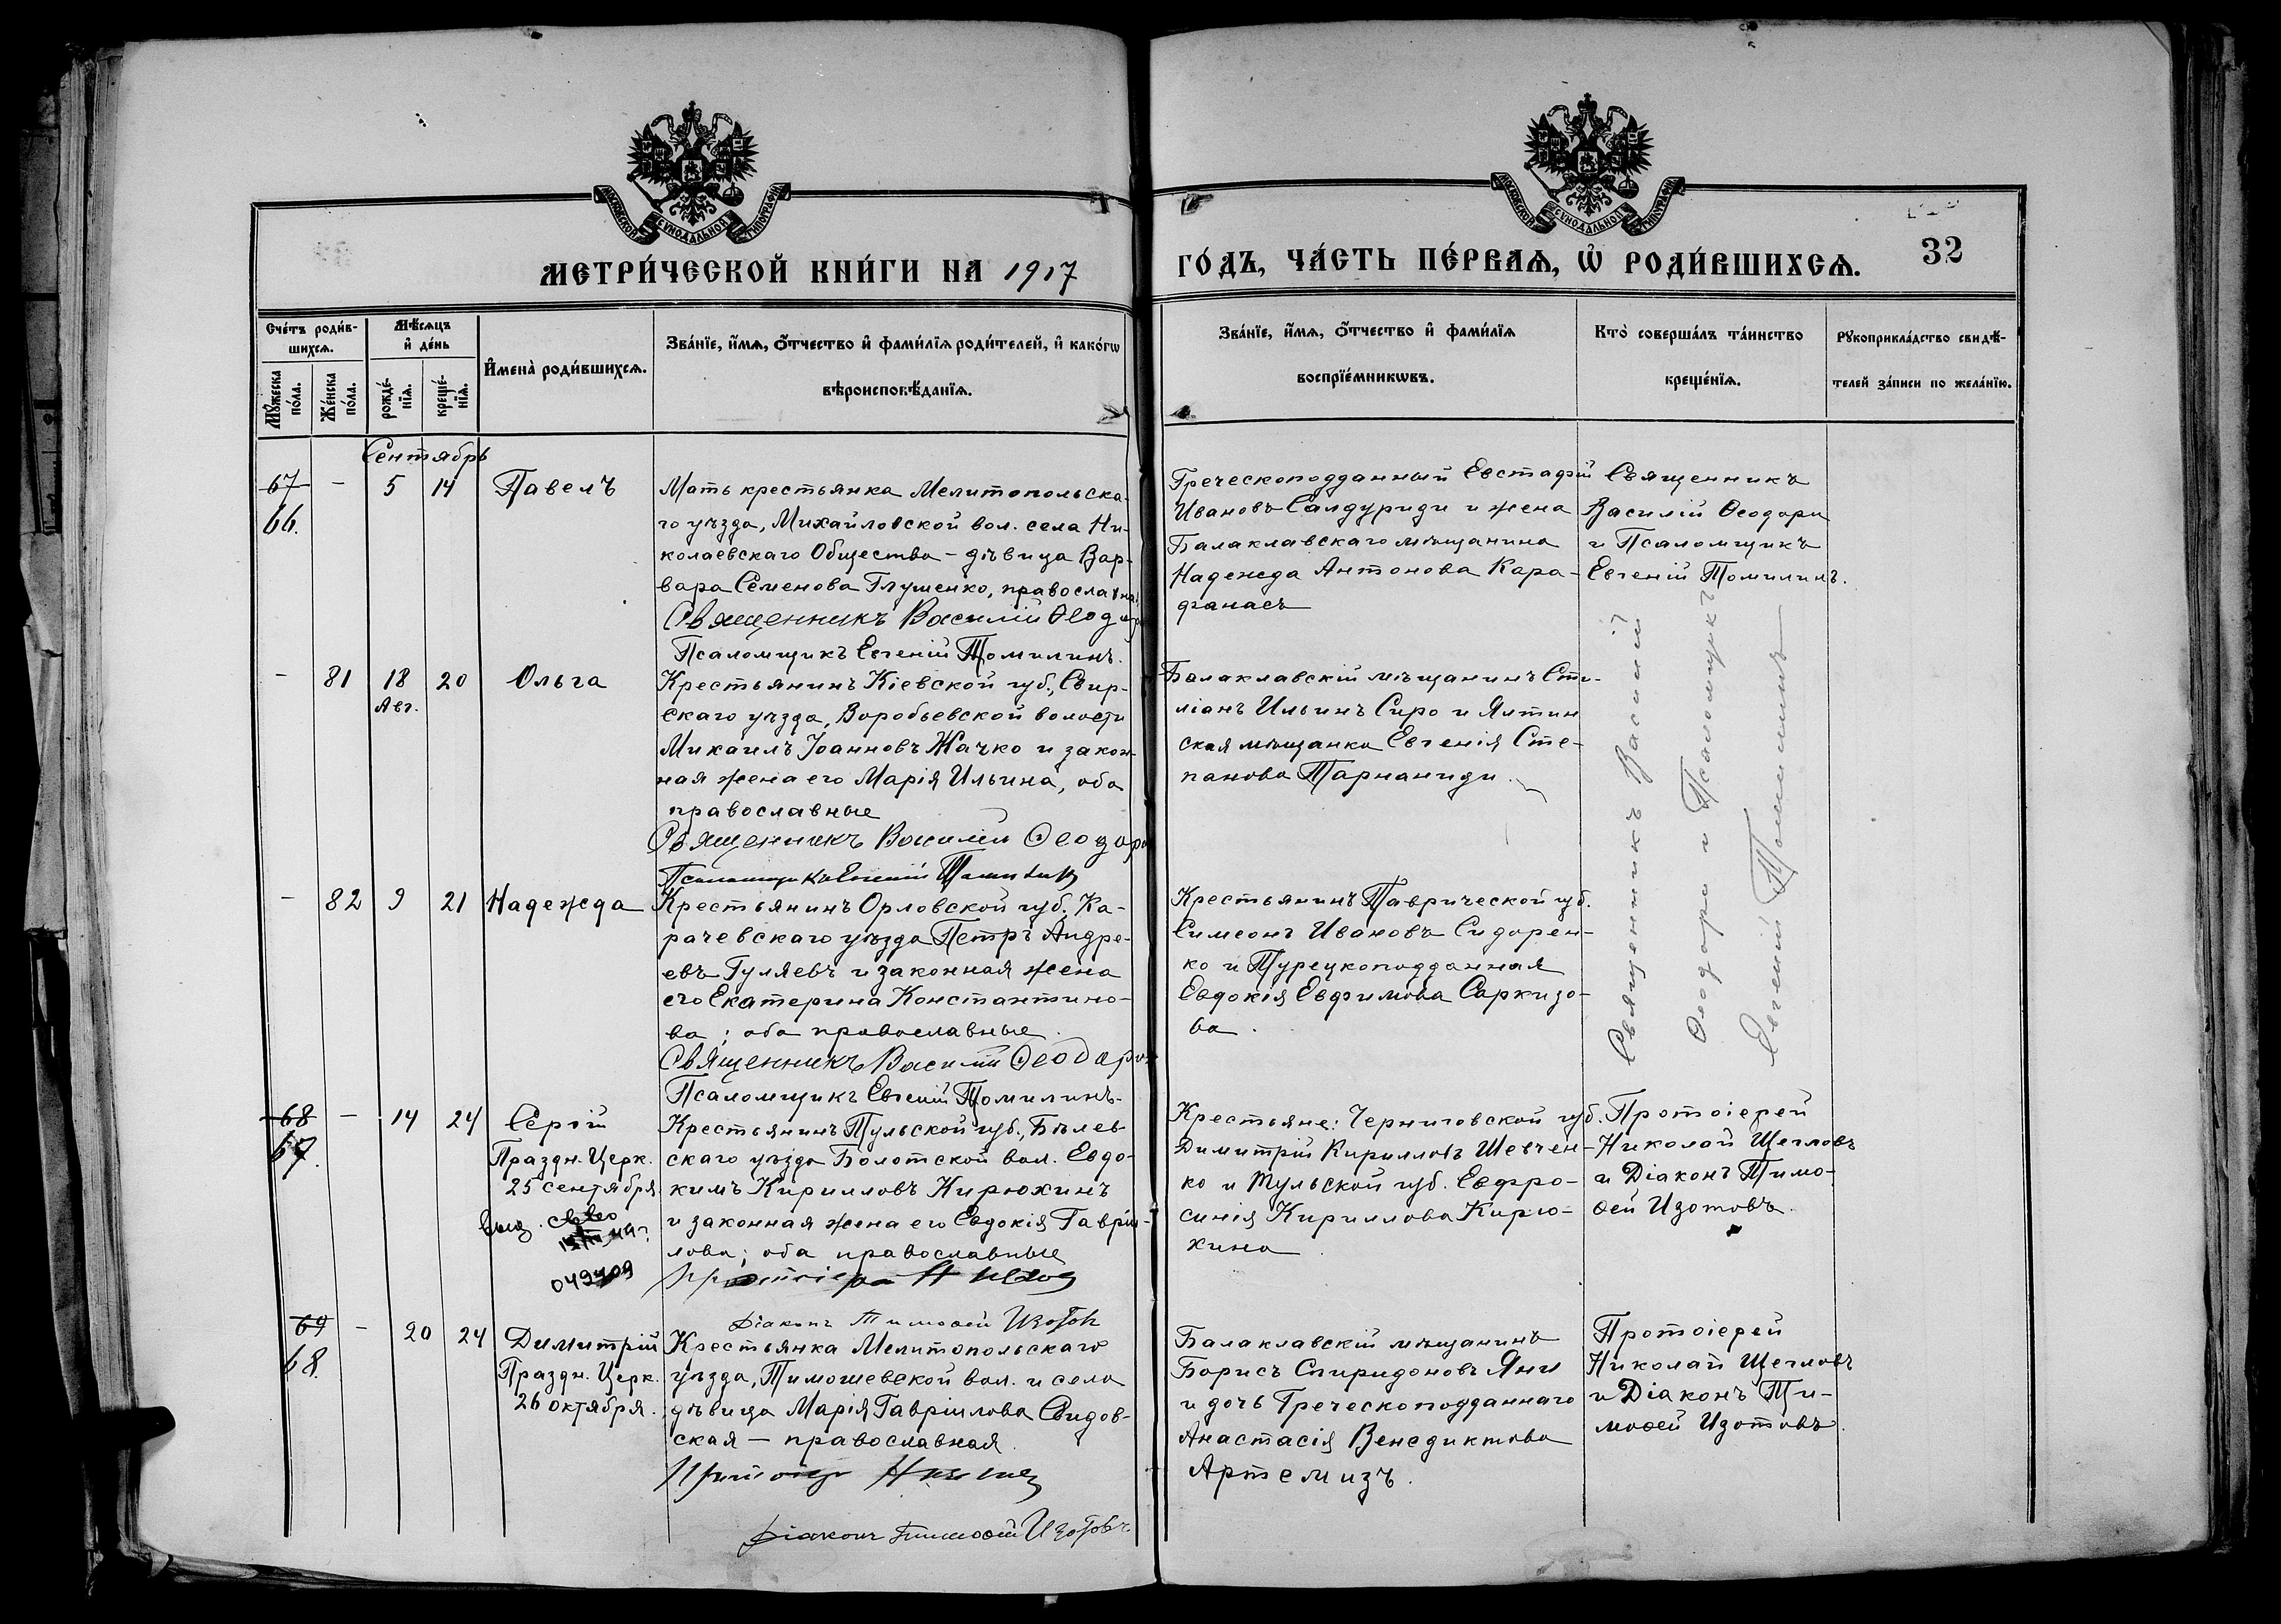 МОСКОВСКОЙ СѴНОДАЛЬНОЙ ТИПОГРАФІИ
МОСКОВСКОЙ СѴНОДАЛЬНОЙ ТИПОГРАФІИ
МЕТРИ́ЧЕСКОЙ КНИ́ГИ НА 1917
ГО́ДЪ, ЧА́СТЬ ПЕ́РВАЯ, Ѡ҆ РОДИ́ВШИХСЯ.
32
Сче́тъ роди́в-
шихсѧ.
Мꙋ́жеска по́ла.
Же́нска по́ла.
Мѣ́сѧцъ
и҆ де́нь
рожде́-
нїѧ.
креще́-
нїѧ.
И҆мена̀ роди́вшихсѧ.
Зва́нїе, и҆́мѧ, ѻ҆́тчество и҆ фами́лїѧ роди́телей, и҆ како́гѡ
вѣроисповѣ́данїѧ.
Зва́нїе, и҆́мѧ, ѻ҆́тчество и҆ фами́лїѧ
воспрїе́мникѡвъ.
Кто̀ соверша́лъ та́инство
креще́нїѧ.
Рꙋкоприкла́дство свидѣ́-
телей за́писи по жела́нїю.
Сентябрь
67
66.
-
5
14
Павелъ
Мать крестьянка Мелитопольска-
го уѣзда, Михайловской вол. села Ни-
колаевскаго Общества - дѣвица Вар-
вара Семенова Глушенко, православная
Священникъ Василій Ѳеодори
Псаломщикъ Евгеній Томилинъ.
Греческоподданный Евстафій
Ивановъ Салдуриди и жена
Балаклавскаго мѣщанина
Надежда Антонова Кара-
фанасъ
Священникъ
Василій Ѳеодори
и Псаломщикъ
Евгеній Томилинъ.
-
81
18
Авг.
20
Ольга
Крестьянинъ Кіевской губ., Свир-
скаго уѣзда, Воробьевской волости
Михаилъ Іоанновъ Жачко и закон-
ная жена его Марія Ильина, оба
православные
Священникъ Василій Ѳеодори
Псаломщикъ Евгеній Томилинъ
Балаклавскій мѣщанинъ Сти-
ліанъ Ильинъ Сиро и Ялтин
ская мѣщанка Евгенія Сте-
панова Парнаниди.
Священникъ Василій
Ѳеодори и Псаломщикъ
Евгеній Томилинъ
-
82
9
21
Надежда
Крестьянинъ Орловской губ., Ка-
рачевскаго уѣзда Петръ Андре-
евъ Гуляевъ и законная жена
его Екатерина Константино-
ва; оба православные.
Священникъ Василій Ѳеодори
Псаломщикъ Евгеній Томилинъ.
Крестьянинъ Таврической губ.
Симеонъ Ивановъ Сидорен-
ко и Турецкоподданная
Евдокія Евфимова Саркизо-
ва.
68
67.
-
14
24
Сергій
Праздн. Церк.
25 сентября.
049409
Крестьянинъ Тульской губ., Бѣлев
скаго уѣзда Болотской вол. Евдо-
кимъ Кирилловъ Кирюхинъ
и законная жена его Евдокія Гаврии-
лова; оба православные
Діаконъ Тимоѳей Изотовъ
Крестьяне: Черниговской губ.
Димитрій Кирилловъ Шевчен-
ко и Тульской губ. Евфро-
синія Кириллова Кирю-
хина.
Протоіерей
Николай Щегловъ
и Діаконъ Тимо-
ѳей Изотовъ.
69
68.
-
20
24
Димитрій
Праздн. Церк.
26 октября.
Крестьянка Мелитопольскаго
уѣзда, Тимошевской вол. и села
дѣвица Марія Гавріилова Свидов-
ская - православная.
Діаконъ Тимоѳей Изотовъ.
Балаклавскій мѣщанинъ
Борисъ Спиридоновъ Яни
и дочь Греческоподданнаго
Анастасія Венедиктова
Артемизъ.
Протоіерей
Николай Щегловъ
и Діаконъ Ти-
моѳей Изотовъ.